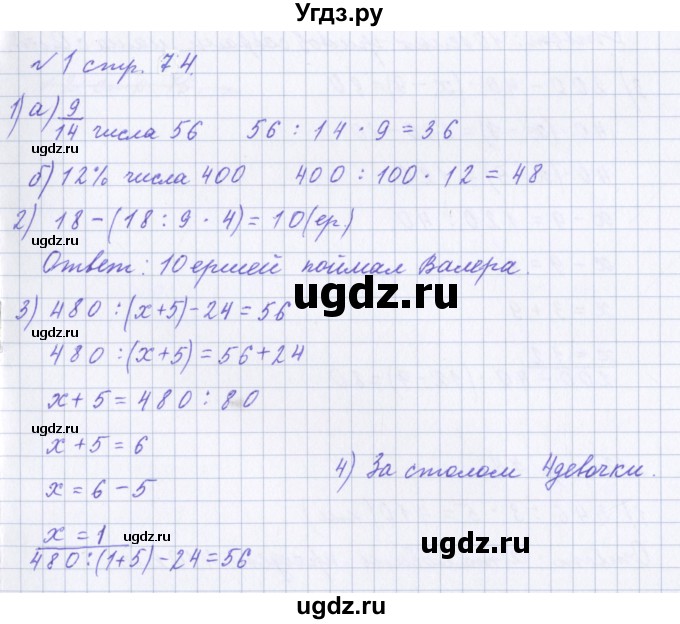 Угдз.ру
№ 1 стр. 74.
1) а) 9/14 числа 56 56 : 14 · 9 = 36
ugdz.ru
б) 12% числа 400 400 : 100 · 12 = 48
2) 18 - (18 : 9 · 4) = 10 (ер)
ugdz.ru
Ответ: 10 ершей поймал Валера.
ugdz.ru
3) 480 : (x+5) - 24 = 56
ugdz.ru
480 : (x+5) = 56 + 24
x + 5 = 480 : 80
ugdz.ru
x + 5 = 6
4) За столом 4 девочки.
x = 6 - 5
x = 1
ugdz.ru
ugdz.ru
480 : (1+5) - 24 = 56
ugdz.ru
ugdz.ru